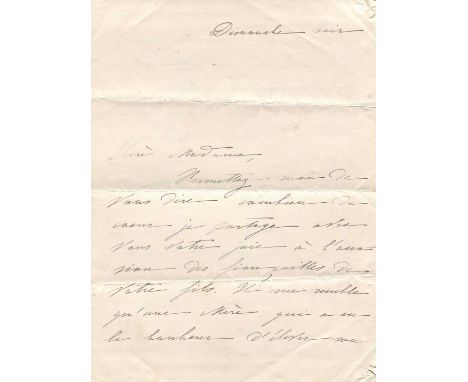 Dimanche soir
Chère Madame,
Permettez-moi de
vous dire combien de
coeur je partage avec
vous votre joie à l'occa
sion des fiançailles de
votre fils. Il me semble
qu'une Mère qui a eu
le bonheur d'élever